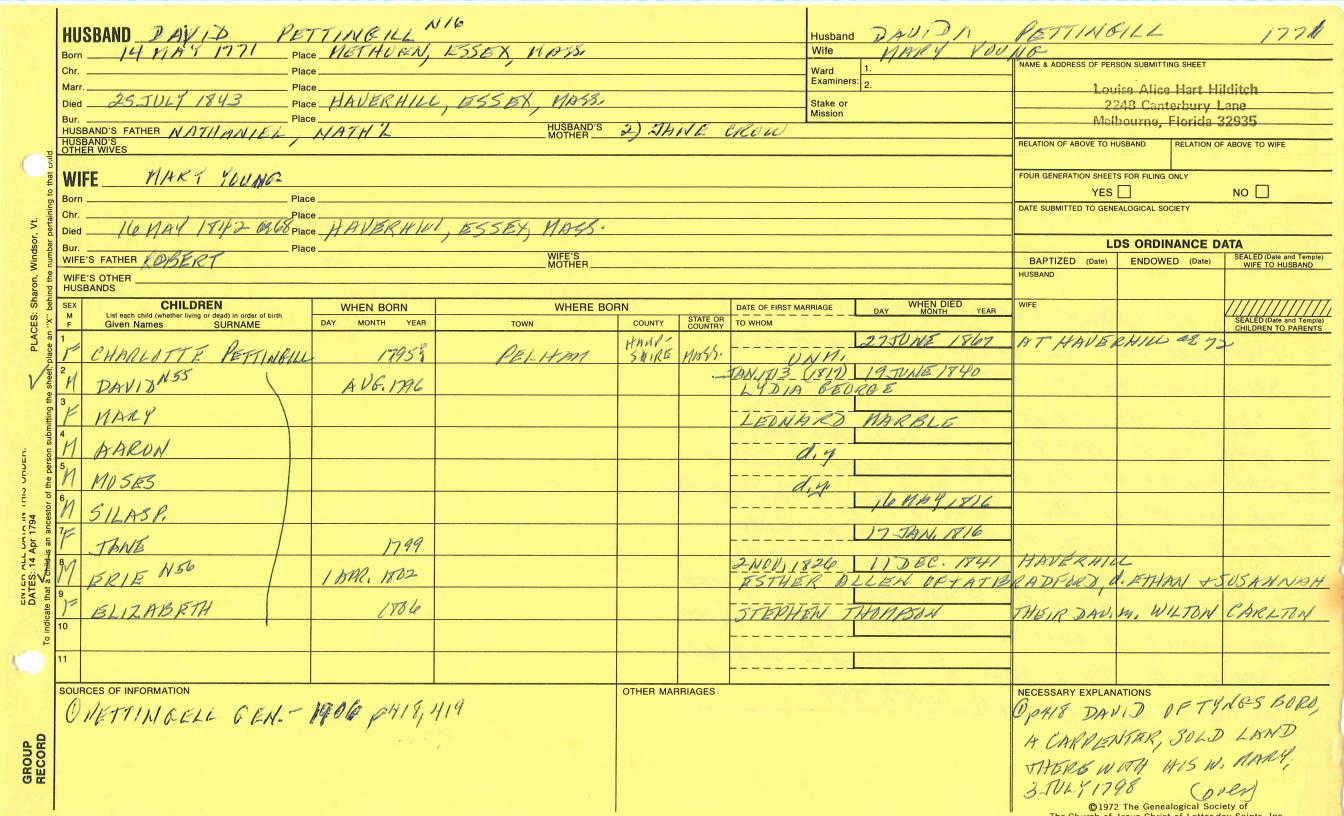 HUSBAND DAVID PETTINGILL N16
Born 14 MAY 1771 Place METHUEN, ESSEX, MASS.
Chr. Place
Marr. Place
Died 25 JULY 1843 Place HAVERHILL, ESSEX, MASS.
Bur. Place
HUSBAND'S FATHER NATHANIEL, NATH'L HUSBAND'S MOTHER 2) JANE CROW
HUSBAND'S OTHER WIVES
Husband DAVID PETTINGILL 1771
Wife MARY YOUNG
Ward Examiners: 1.
2.
Stake or Mission
NAME & ADDRESS OF PERSON SUBMITTING SHEET
Louise Alice Hart Hilditch
2248 Canterbury Lane
Melbourne, Florida 32935
RELATION OF ABOVE TO HUSBAND RELATION OF ABOVE TO WIFE
FOUR GENERATION SHEETS FOR FILING ONLY
YES NO
DATE SUBMITTED TO GENEALOGICAL SOCIETY
WIFE MARY YOUNG
Born Place
Chr. Place
Died 16 MAY 1842 Place HAVERHILL, ESSEX, MASS.
Bur. Place
WIFE'S FATHER ROBERT WIFE'S MOTHER
WIFE'S OTHER HUSBANDS
LDS ORDINANCE DATA
BAPTIZED (Date) ENDOWED (Date) SEALED (Date and Temple) WIFE TO HUSBAND
HUSBAND
WIFE
SEALED (Date and Temple) CHILDREN TO PARENTS
SEX M F
CHILDREN
List each child (whether living or dead) in order of birth
Given Names SURNAME
WHEN BORN
DAY MONTH YEAR
WHERE BORN
TOWN COUNTY STATE OR COUNTRY
DATE OF FIRST MARRIAGE
TO WHOM
WHEN DIED
DAY MONTH YEAR
1 F CHARLOTTE PETTINGILL 1795 PELHAM HAMP-SHIRE MASS. UNM. 27 JUNE 1867 AT HAVERHILL æ 72
2 M DAVID N55 AUG. 1796 JAN. 1813 (1812) 19 JUNE 1840
LYDIA GEORGE
3 F MARY LEONARD MARBLE
4 M AARON d.y
5 M MOSES d.y.
6 M SILAS P. 16 MAY 1816
7 F JANE 1799 17 JAN. 1816
8 M ERIE N56 1 APR. 1802 2 NOV, 1826 11 DEC. 1841 HAVERHILL
ESTHER ALLEN OF + AT BRADFORD, d. ETHAN + SUSANNAH
9 F ELIZABETH 1806 STEPHEN THOMPSON THEIR DAU. m. WILTON CARLTON
10
11
SOURCES OF INFORMATION
① PETTINGELL GEN. - 1906 p418, 419
OTHER MARRIAGES
NECESSARY EXPLANATIONS
① p418 DAVID OF TYNGSBORO,
A CARPENTER, SOLD LAND
THERE WITH HIS W. MARY,
3 JULY 1798 (over)
©1972 The Genealogical Society of
The Church of Jesus Christ of Latter-day Saints, Inc.
PLACES: Sharon, Windsor, Vt.
ENTER ALL DATA IN THIS ORDER:
DATES: 14 Apr 1794
To indicate that a child is an ancestor of the person submitting the sheet, place an "X" behind the number pertaining to that child.
GROUP RECORD